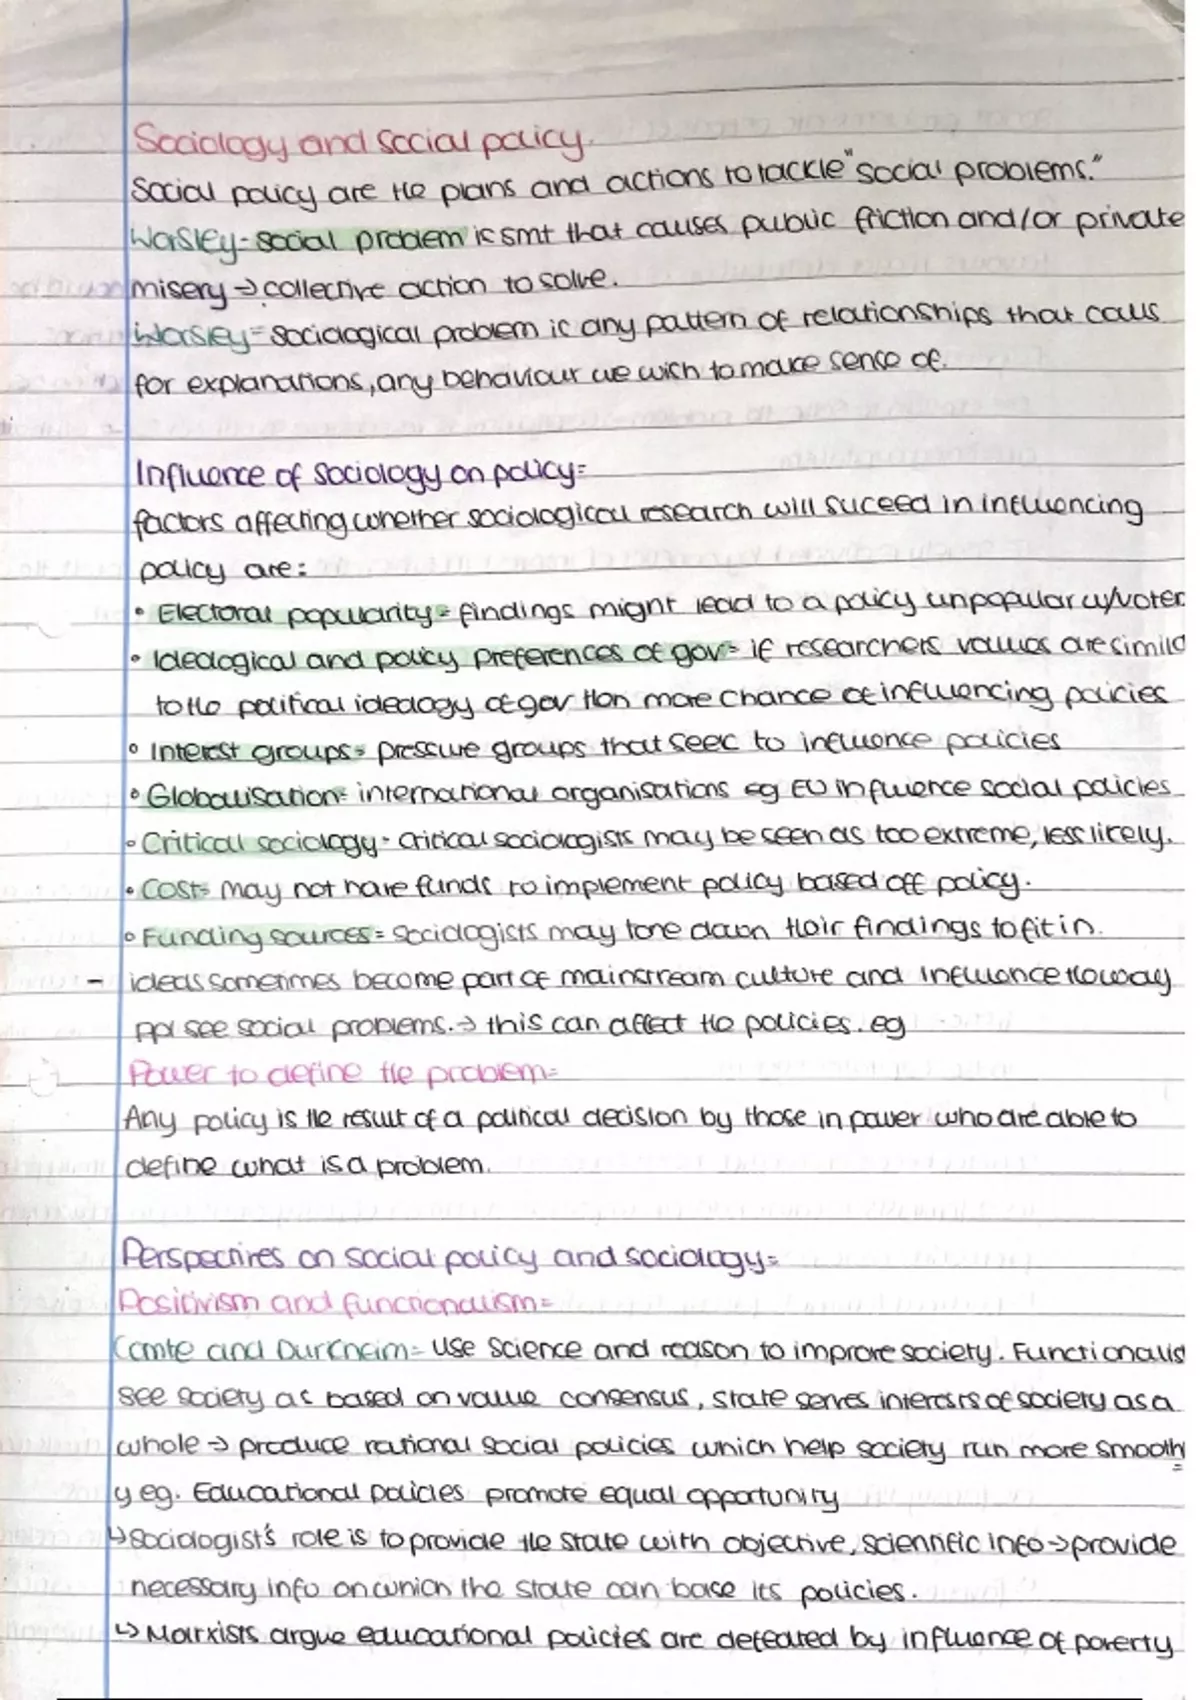 Sociology and social policy.
Social policy are the plans and actions to tackle "social problems."
Worsley- social problem is smt that causes public friction and/or private
misery → collective action to solve.
Worsley = sociological problem is any pattern of relationships that calls
for explanations, any behaviour we wish to make sense of.
Influence of sociology on policy=
factors affecting whether sociological research will suceed in influencing
policy are:
• Electoral popularity = findings might lead to a policy unpopular w/voter
• Ideological and policy preferences of gov = if researchers values are simila
to the political ideology of gov then more chance of influencing policies
• Interest groups = pressure groups that seek to influence policies
• Globalisation = international organisations eg EU influence social policies
• Critical sociology - critical sociologists may be seen as too extreme, less likely.
• Cost = may not have funds to implement policy based off policy.
• Funding sources = sociologists may tone down their findings to fit in.
- ideas sometimes become part of mainstream culture and influence the way
ppl see social problems. → this can affect the policies. eg
Power to define the problem =
Any policy is the result of a political decision by those in power who are able to
define what is a problem.
Perspectives on social policy and sociology =
Positivism and functionalism =
Comte and Durkheim = Use science and reason to improve society. Functionalis
see society as based on value consensus, state serves interests of society as a
whole → produce rational social policies which help society run more smooth
y eg. Educational policies promote equal opportunity
↳ Sociologist's role is to provide the state with objective, scientific info → provide
necessary info on which the state can base its policies.
↳ Marxists argue educational policies are defeated by influence of poverty